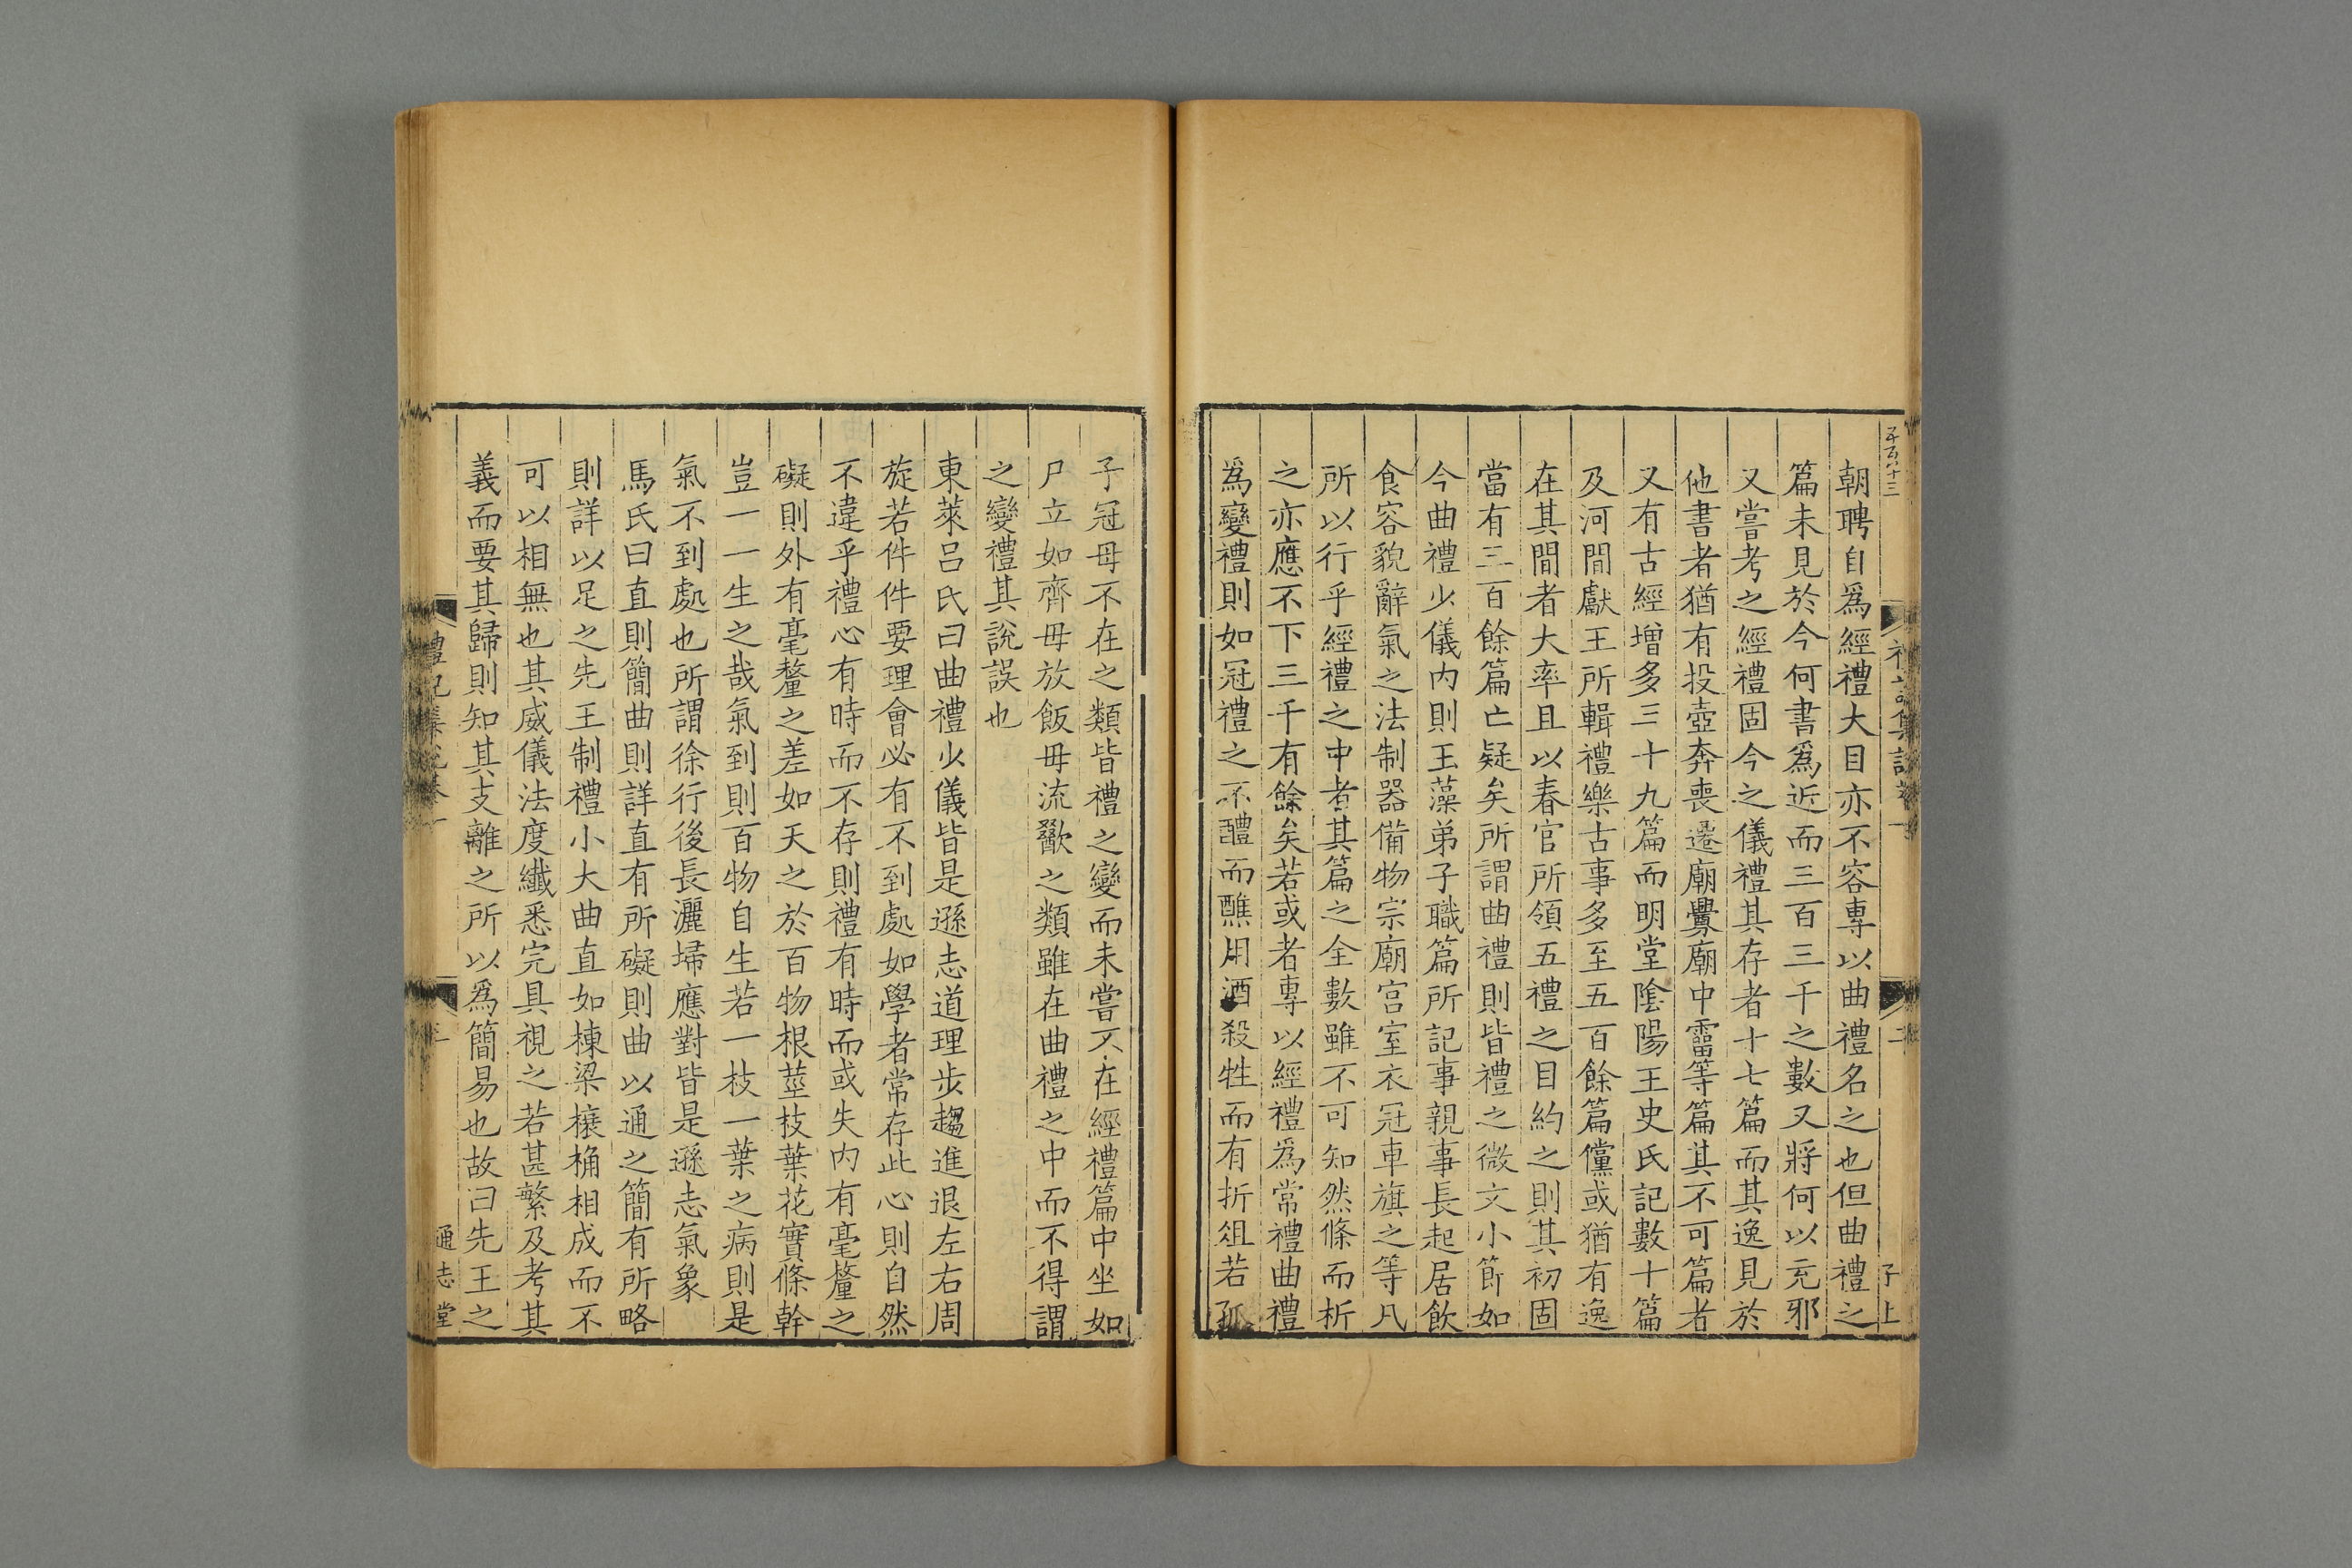 朝聘自爲經禮大目亦不容専以曲禮名之也但曲禮之
篇未見於今何書爲近而三百三千之數又將何以充邪
又嘗考之經禮固今之儀禮其存者十七篇而其逸見於
他書者猶有投壺奔喪遷廟釁廟中霤等篇其不可篇者
又有古經增多三十九篇而明堂陰陽王史氏記數十篇
及河間獻王所輯禮樂古事多至五百餘篇儻或猶有逸
在其間者大率且以春官所領五禮之目約之則其初固
當有三百餘篇亡疑矣所謂曲禮則皆禮之微文小節如
今曲禮少儀内則玉藻弟子職篇所記事親事長起居飲
食容貌辭氣之法制器備物宗廟宫室衣冠車旗之等凡
所以行乎經禮之中者其篇之全數雖不可知然條而析
之亦應不下三千有餘矣若或者専以經禮爲常禮曲禮
爲變禮則如冠禮之不醴而醮用酒殺牲而有折俎若孤
子冠母不在之類皆禮之變而未嘗不在經禮篇中坐如
尸立如齊毋放飯毋流歠之類雖在曲禮之中而不得謂
之變禮其說誤也
東萊吕氏曰曲禮少儀皆是遜志道理步趨進退左右周
旋若件件要理會必有不到處如學者常存此心則自然
不違乎禮心有時而不存則禮有時而或失内有毫釐之
礙則外有毫釐之差如天之於百物根莖枝葉花實條幹
豈一一生之哉氣到則百物自生若一枝一葉之病則是
氣不到處也所謂徐行後長灑埽應對皆是遜志氣象
馬氏曰直則簡曲則詳直有所礙則曲以通之簡有所略
則詳以足之先王制禮小大曲直如棟梁榱桷相成而不
可以相無也其威儀法度纎悉完具視之若甚繁及考其
義而要其歸則知其支離之所以爲簡易也故曰先王之
通志堂